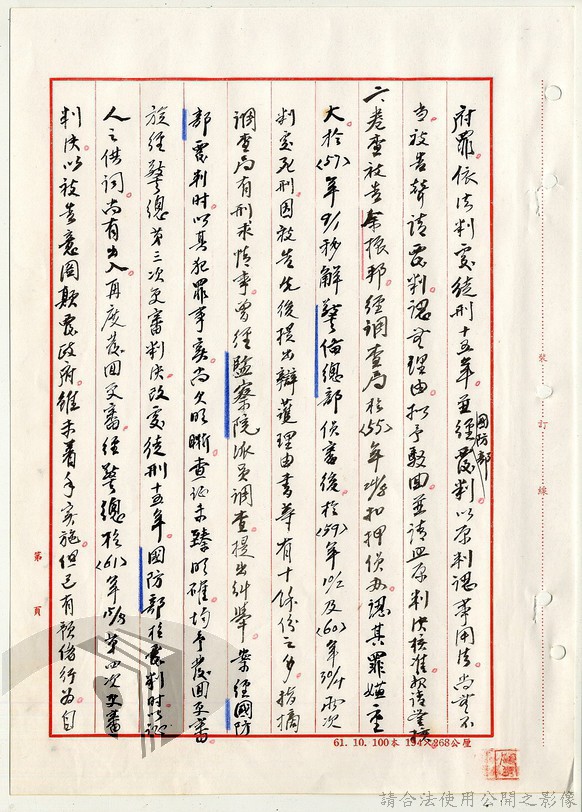 府罪。依法判處徒刑十五年。並經國防部覆判以原判認事用法尚無不
當被告聲請覆判認無理由。扣予駁回並請照原判決核准
六、卷查被告余振邦。經調查局於〈55〉年 扣押偵办。認其罪嫌重
大。於〈57〉年9/1移解警備總部偵審後。於〈59〉年10/2及〈60〉年 兩次
判處死刑因被告先後提出辯護理由書等有十餘份之多。指摘
調查局有刑求情事。曾經監察院派員調查。提出糾舉。案經國防
部覆判時。以其犯罪事實尚欠明晰。查証未臻明確。均予發回更審。
旋經警總第三次更審判決。改處徒刑十五年。國防部於覆判時以
人之供詞。尚有出入。再度發回更審。經警總於〈61〉年 第四次更審
判決。以被告意圖顛覆政府。雖未着手实施。但已有預備行為自
第 頁
裝訂線
61. 10. 100本 268公厘
請合法使用公開之影像